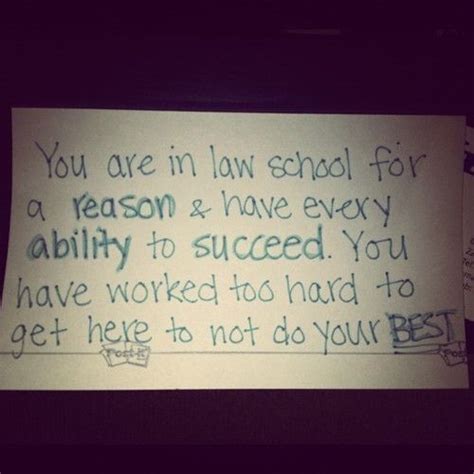 You are in law school for
a reason & have every
ability to succeed. You
have worked too hard to
get here to not do your BEST
Post-it Post